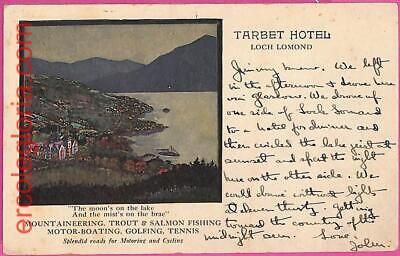 TARBET HOTEL
LOCH LOMOND
We left
in the afternoon & drove here
via Glasgow. We drove up
one side of Loch Lomond
to a hotel for dinner and
then circled the lake just at
sunset and spent the night
on the other side. We
could almost without light
I at eleven thirty. Getting
toward the country of the
midnight sun. Love.
John.
"The moon's on the lake
And the mist's on the brae"
MOUNTAINEERING, TROUT & SALMON FISHING
MOTOR-BOATING, GOLFING, TENNIS
Splendid roads for Motoring and Cycling
ercolegloria.com